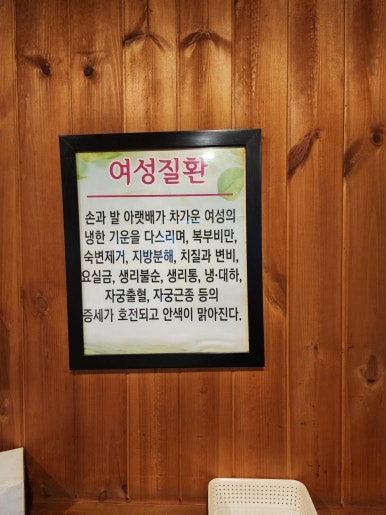 여성질환
손과 발 아랫배가 차가운 여성의
냉한 기운을 다스리며, 복부비만,
숙변제거, 지방분해, 치질과 변비,
요실금, 생리불순, 생리통, 냉·대하,
자궁출혈, 자궁근종 등의
증세가 호전되고 안색이 맑아진다.